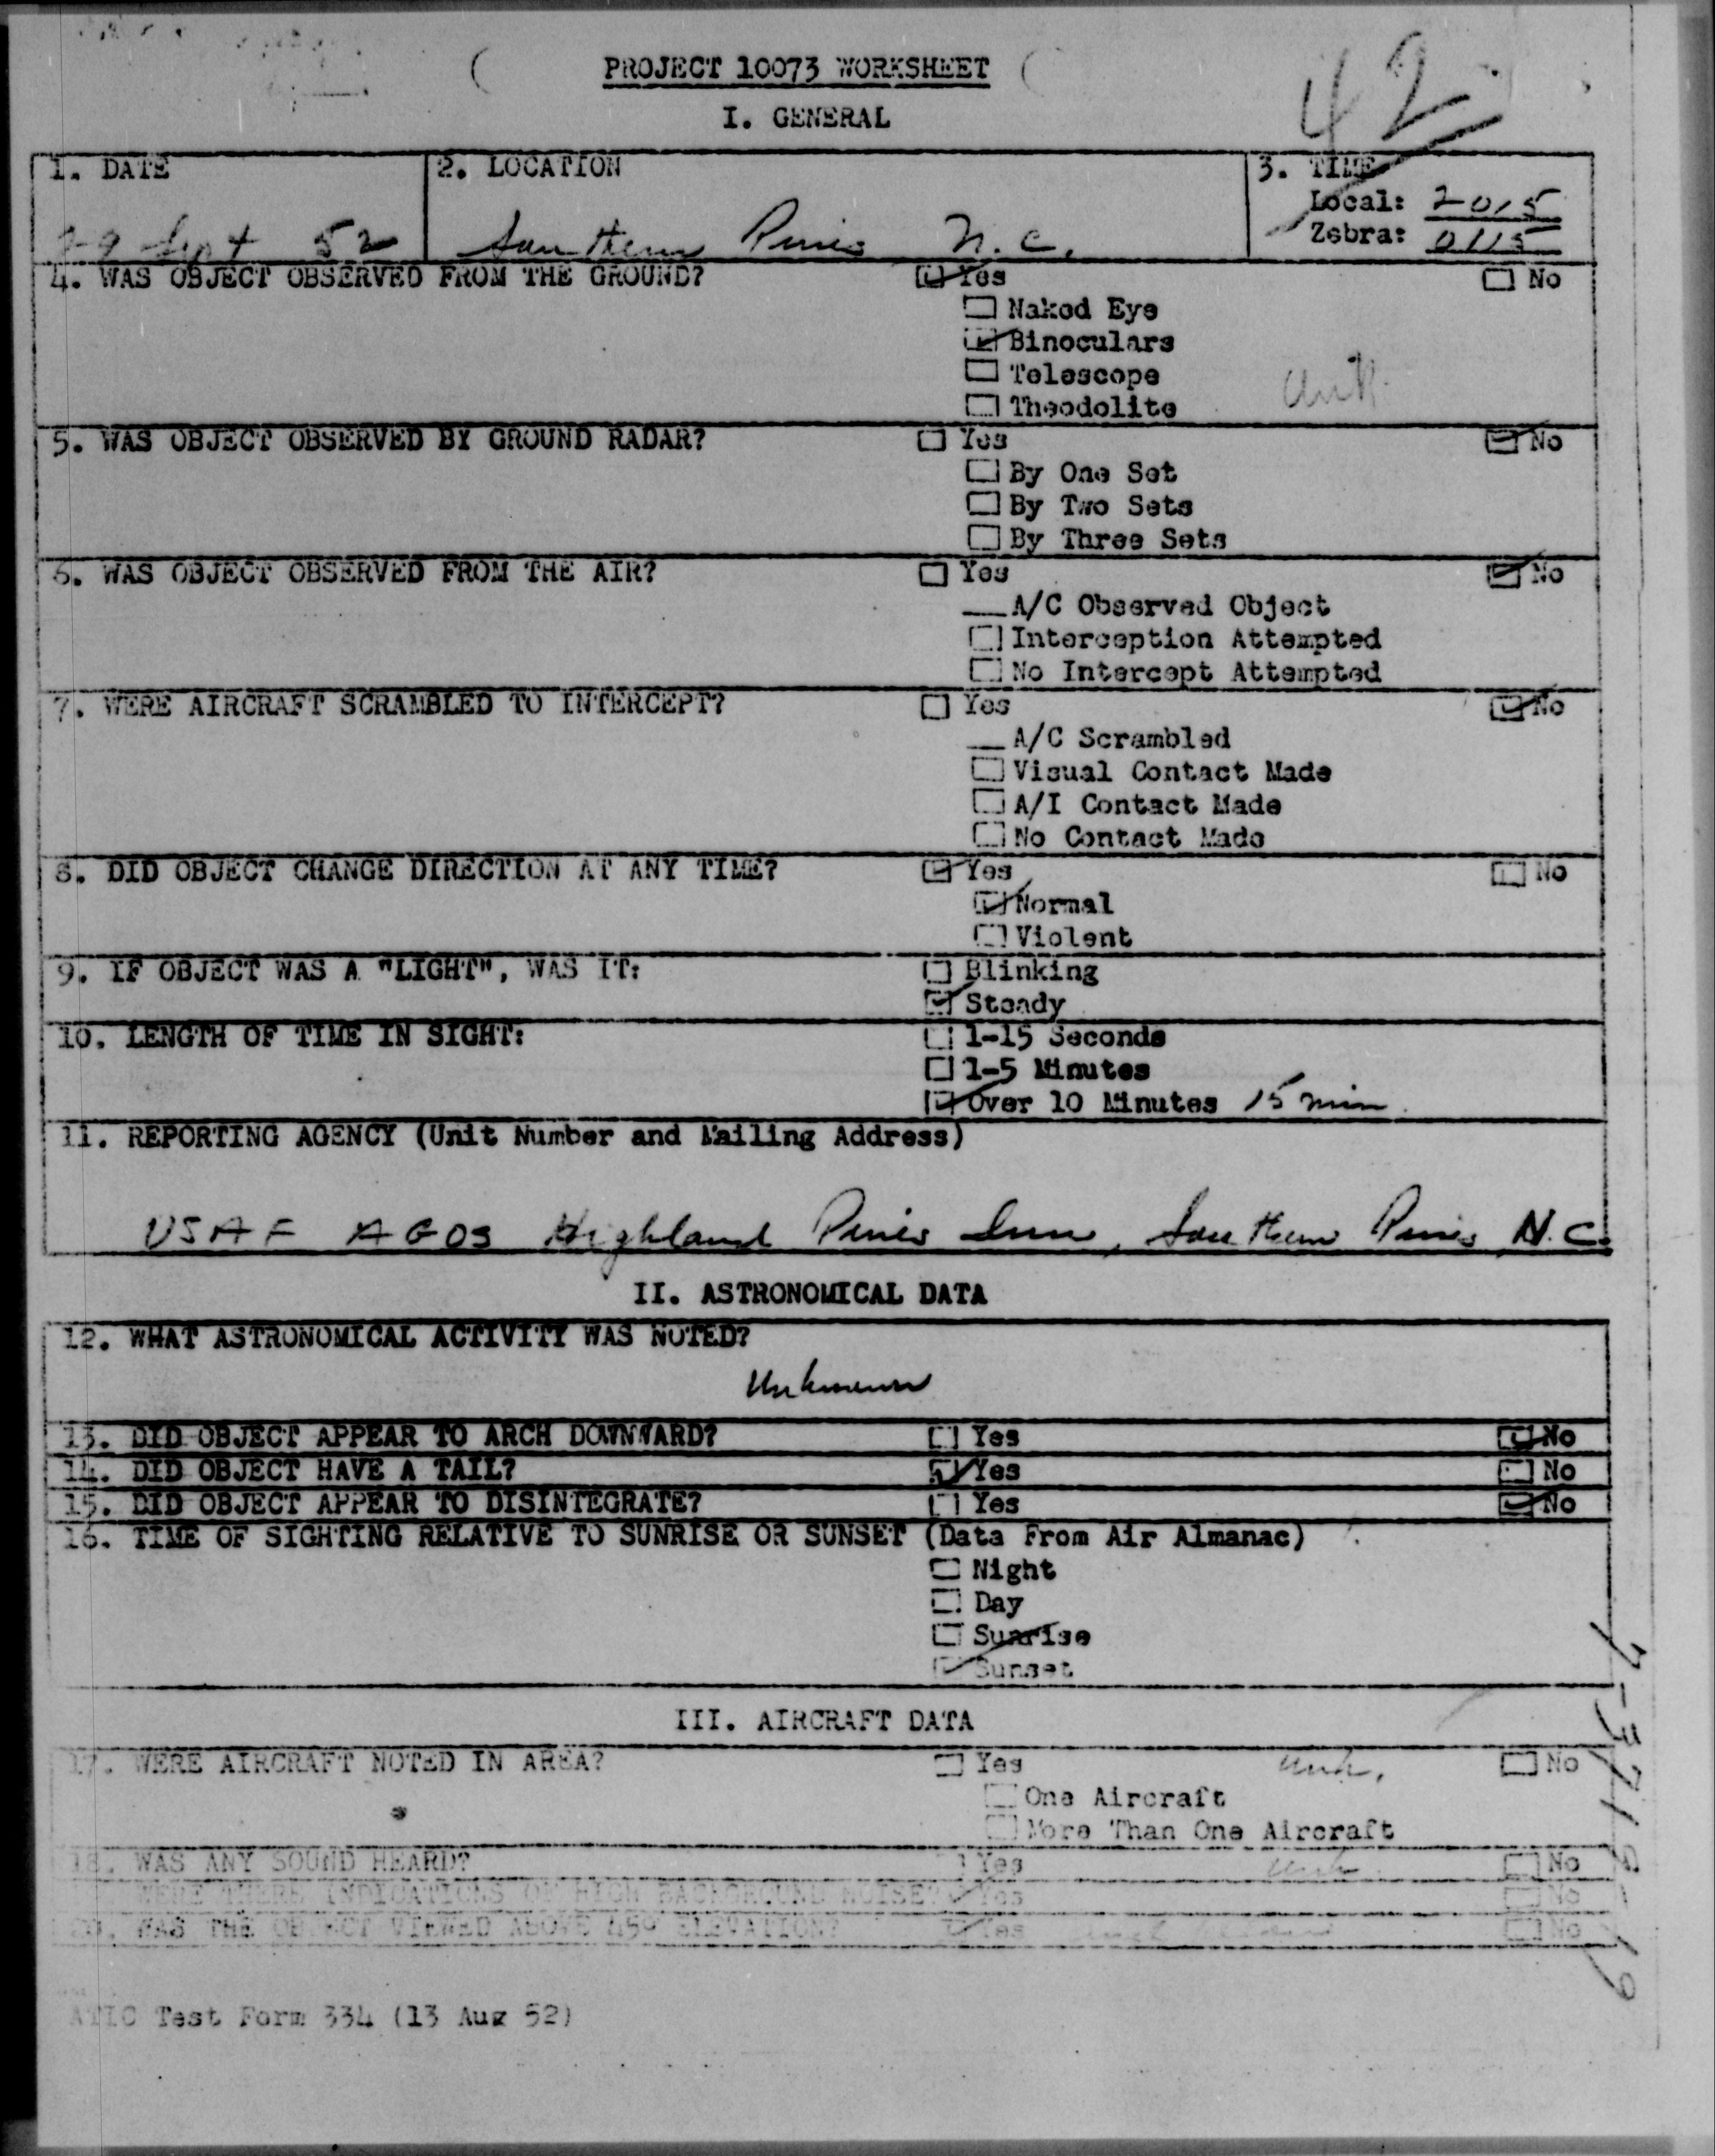 PROJECT 10073 WORKSHEET
42
I. GENERAL
1. DATE
29 Sept 52
2. LOCATION
Southern Pines N.C.
3. TIME
Local: 2015
Zebra: 0115
4. WAS OBJECT OBSERVED FROM THE GROUND? Yes No
Naked Eye
Binoculars
Telescope
Theodolite
5. WAS OBJECT OBSERVED BY GROUND RADAR? Yes No
By One Set
By Two Sets
By Three Sets
6. WAS OBJECT OBSERVED FROM THE AIR? Yes No
A/C Observed Object
Interception Attempted
No Intercept Attempted
7. WERE AIRCRAFT SCRAMBLED TO INTERCEPT? Yes No
A/C Scrambled
Visual Contact Made
A/I Contact Made
No Contact Made
8. DID OBJECT CHANGE DIRECTION AT ANY TIME? Yes No
Normal
Violent
9. IF OBJECT WAS A "LIGHT", WAS IT: Blinking
Steady
10. LENGTH OF TIME IN SIGHT: 1-15 Seconds
1-5 Minutes
Over 10 Minutes 15 min
11. REPORTING AGENCY (Unit Number and Mailing Address)
USAF AGOS Highland Pines Inn, Southern Pines N.C.
II. ASTRONOMICAL DATA
12. WHAT ASTRONOMICAL ACTIVITY WAS NOTED?
Unknown
13. DID OBJECT APPEAR TO ARCH DOWNWARD? Yes No
14. DID OBJECT HAVE A TAIL? Yes No
15. DID OBJECT APPEAR TO DISINTEGRATE? Yes No
16. TIME OF SIGHTING RELATIVE TO SUNRISE OR SUNSET (Data From Air Almanac)
Night
Day
Sunrise
Sunset
III. AIRCRAFT DATA
17. WERE AIRCRAFT NOTED IN AREA? Yes unk. No
One Aircraft
More Than One Aircraft
18. WAS ANY SOUND HEARD? Yes unk No
WERE THERE INDICATIONS OF HIGH BACKGROUND NOISE? Yes No
20. WAS THE OBJECT VIEWED ABOVE 45° ELEVATION? Yes No
ATIC Test Form 334 (13 Aug 52)